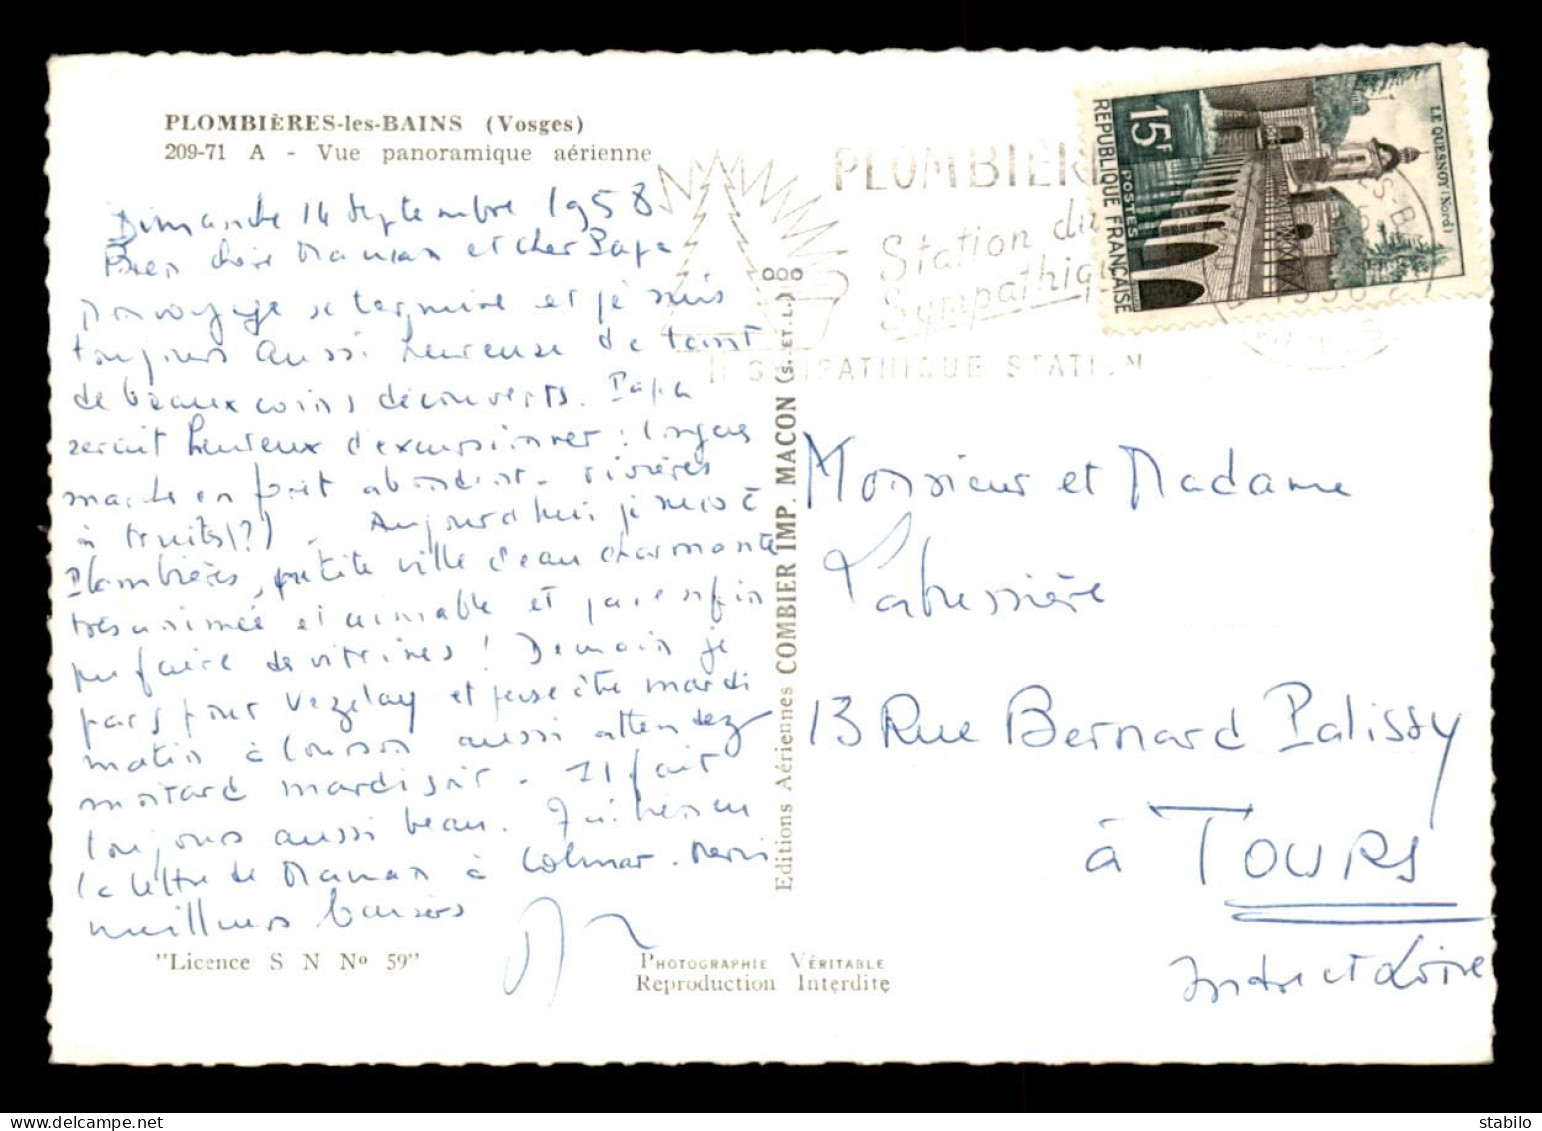 PLOMBIÈRES-les-BAINS (Vosges)
209-71 A - Vue panoramique aérienne
Dimanche 14 Septembre 1958
Bien chère Maman et cher Papa
Mon voyage se termine et je suis
toujours aussi heureuse de tant
de beaux coins découverts. Papa
serait heureux d'excursionner : longues
marche en forêt abondent - rivières
à truites (?) - Aujourd'hui je suis à
Plombières, petite ville d'eau charmante
très animée et aimable et j'ai enfin
pu faire des vitrines ! Demain je
pars pour Vezelay et peut être mardi
matin à aussi attendez
mardi soir - Il fait
toujours aussi beau. J'ai bien eu
la lettre de Maman à Colmar. Merci
meilleurs baisers
"Licence S N Nº 59"
PHOTOGRAPHIE VÉRITABLE
Reproduction Interdite
Editions Aériennes COMBIER IMP. MACON (S.-ET-L.)
PLOMBIÈR
Station du
Sympathiq
SYMPATHIQUE STATION
15F
POSTES
RÉPUBLIQUE FRANÇAISE
LE QUESNOY (Nord)
Monsieur et Madame
Labussière
13 Rue Bernard Palissy
à TOURS
Indre et Loire